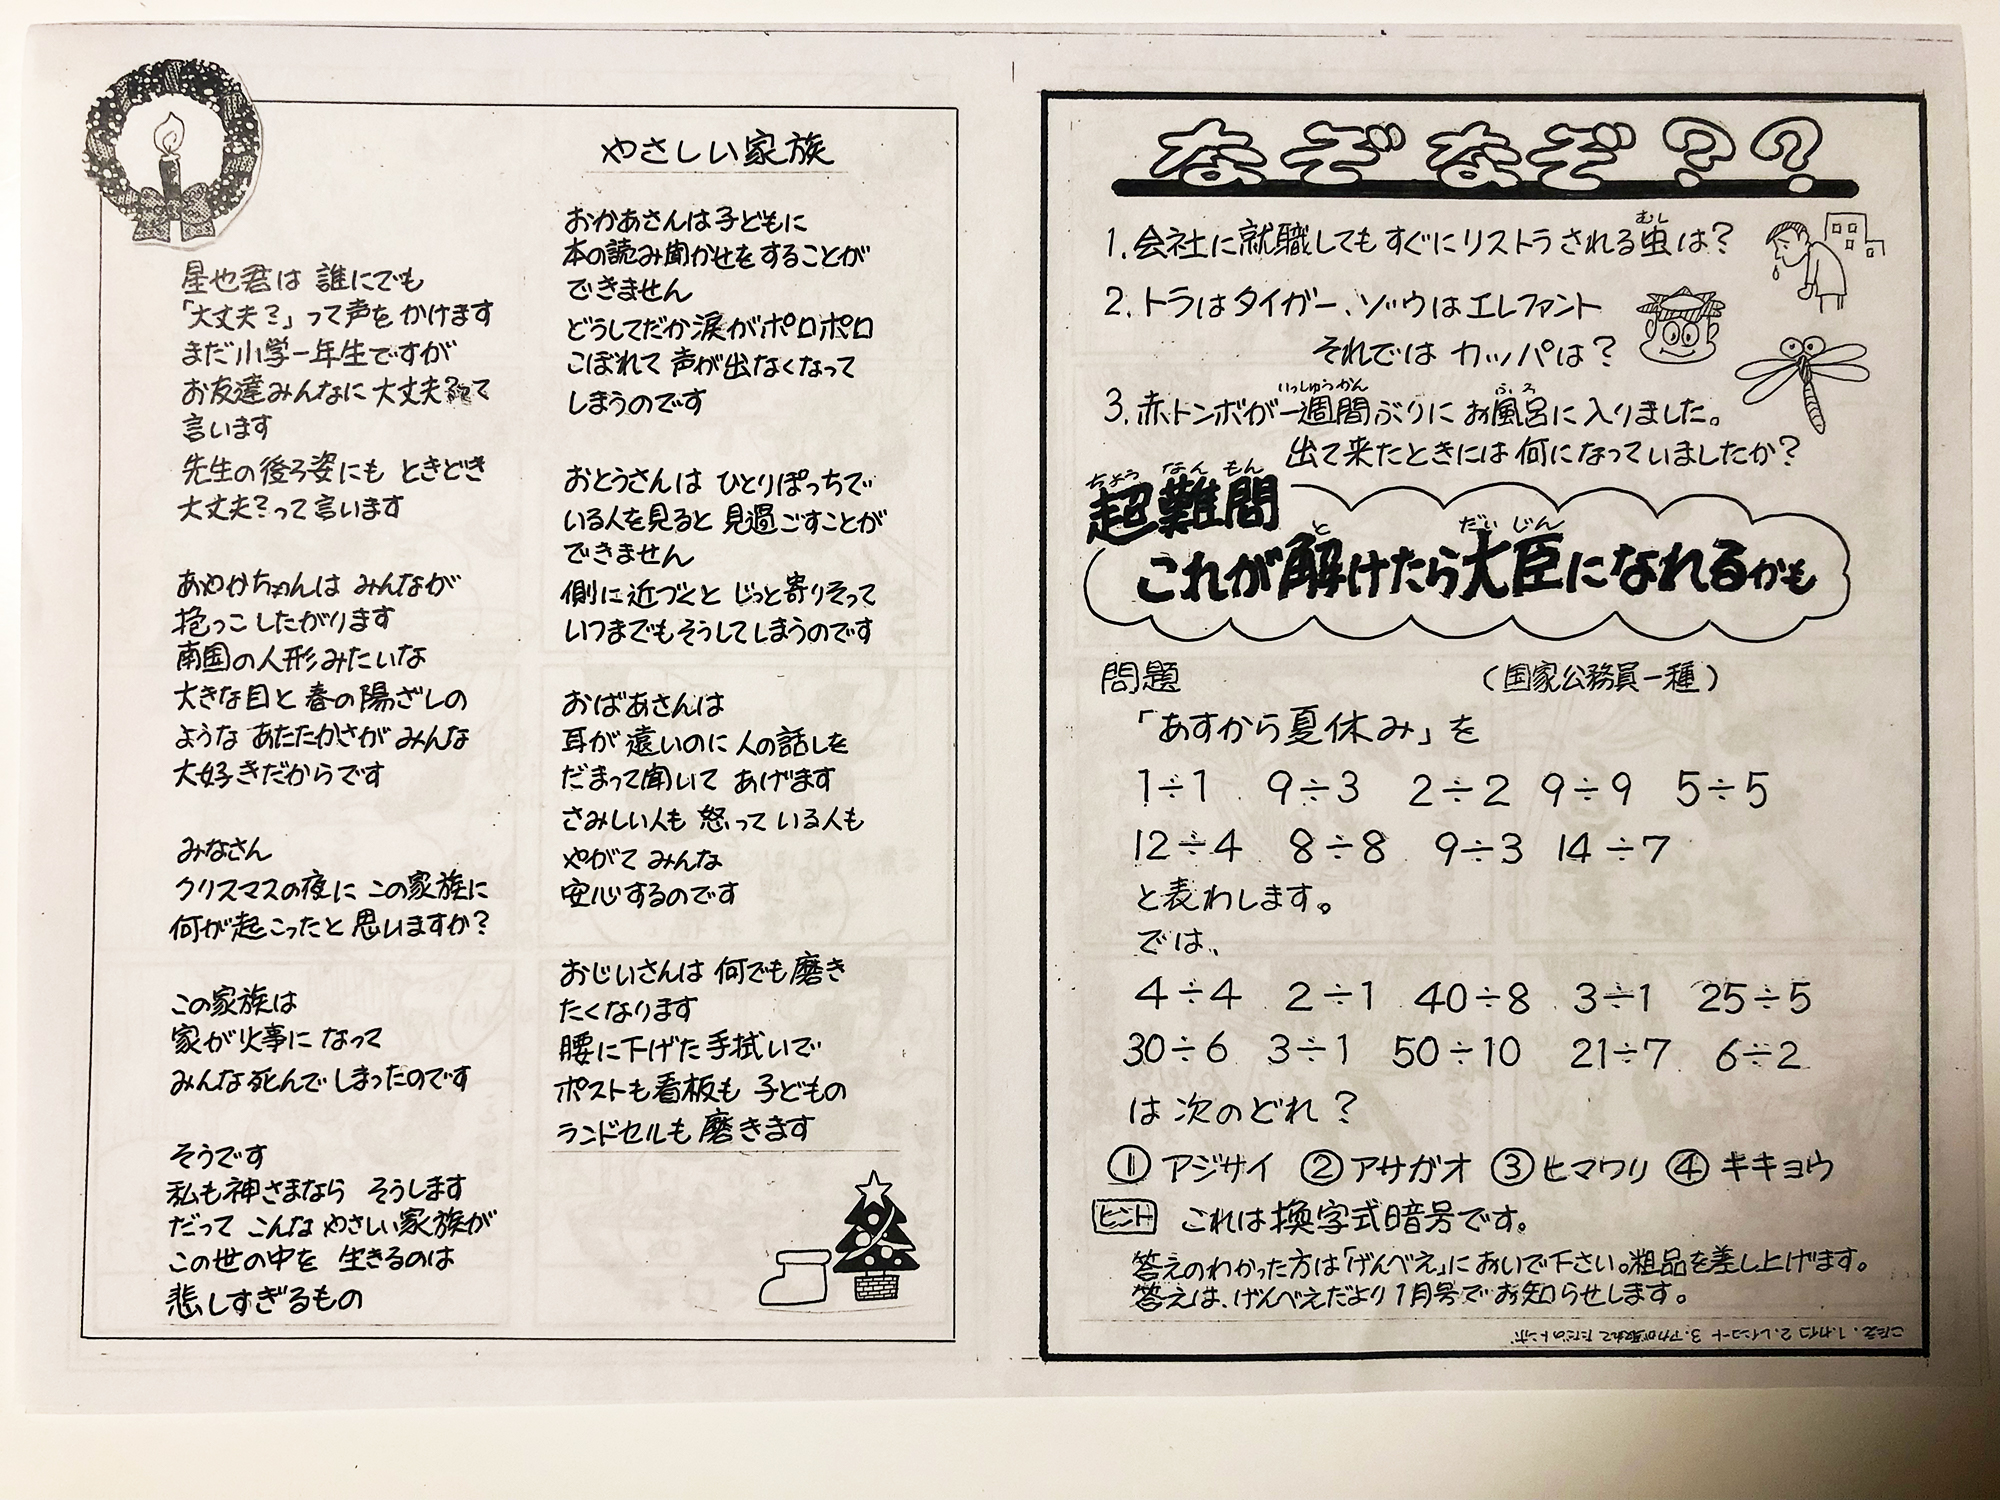 やさしい家族
おかあさんは子どもに
本の読み聞かせをすることが
できません
どうしてだか涙がポロポロ
こぼれて声が出なくなって
しまうのです
おとうさんは ひとりぽっちで
いる人を見ると 見過ごすことが
できません
側に近づくと じっと寄りそって
いつまでもそうしてしまうのです
おばあさんは
耳が遠いのに人の話しを
だまって聞いて あげます
さみしい人も 怒って いる人も
やがて みんな
安心するのです
おじいさんは 何でも磨き
たくなります
腰に下げた手拭いで
ポストも看板も 子どもの
ランドセルも 磨きます
星也君は 誰にでも
「大丈夫?」って声を かけます
まだ小学一年生ですが
お友達みんなに大丈夫?って
言います
先生の後ろ姿にも ときどき
大丈夫?って言います
あやかちゃんは みんなが
抱っこ したがります
南国の人形みたいな
大きな目と 春の陽ざしの
ような あたたかさが みんな
大好きだからです
みなさん
クリスマスの夜に この家族に
何が起こったと 思いますか?
この家族は
家が火事に なって
みんな死んで しまったのです
そうです
私も神さまなら そうします
だって こんな やさしい家族が
この世の中を 生きるのは
悲しすぎるもの
なぞなぞ??
1.会社に就職してもすぐにリストラされる虫(むし)は?
2.トラはタイガー、ゾウはエレファント
それでは カッパは?
3.赤トンボが一週間(いっしゅうかん)ぶりにお風呂(ふろ)に入りました。
出て来たときには何になっていましたか?
超難問(ちょうなんもん)
これが解(と)けたら大臣(だいじん)になれるかも
問題 (国家公務員一種)
「あすから夏休み」を
1÷1 9÷3 2÷2 9÷9 5÷5
12÷4 8÷8 9÷3 14÷7
と表わします。
では、
4÷4 2÷1 40÷8 3÷1 25÷5
30÷6 3÷1 50÷10 21÷7 6÷2
は次のどれ?
①アジサイ ②アサガオ ③ヒマワリ ④キキョウ
ヒント これは換字式暗号です。
答えのわかった方は「げんべえ」においで下さい。粗品を差し上げます。
答えは、げんべえだより1月号でお知らせします。
こたえ.1.カイコ 2.レインコート 3.アカが取れてただのトンボ